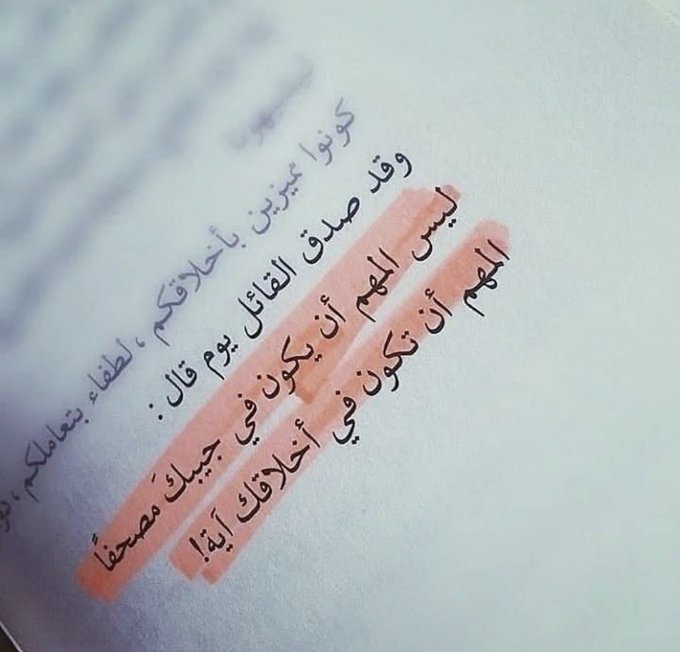 كونوا مميزين بأخلاقكم ، لطفاء بتعاملكم ،
وقد صدق القائل يوم قال :
ليس المهم أن يكون في جيبكَ مصحفاً
المهم أن تكون في أخلاقك آية!